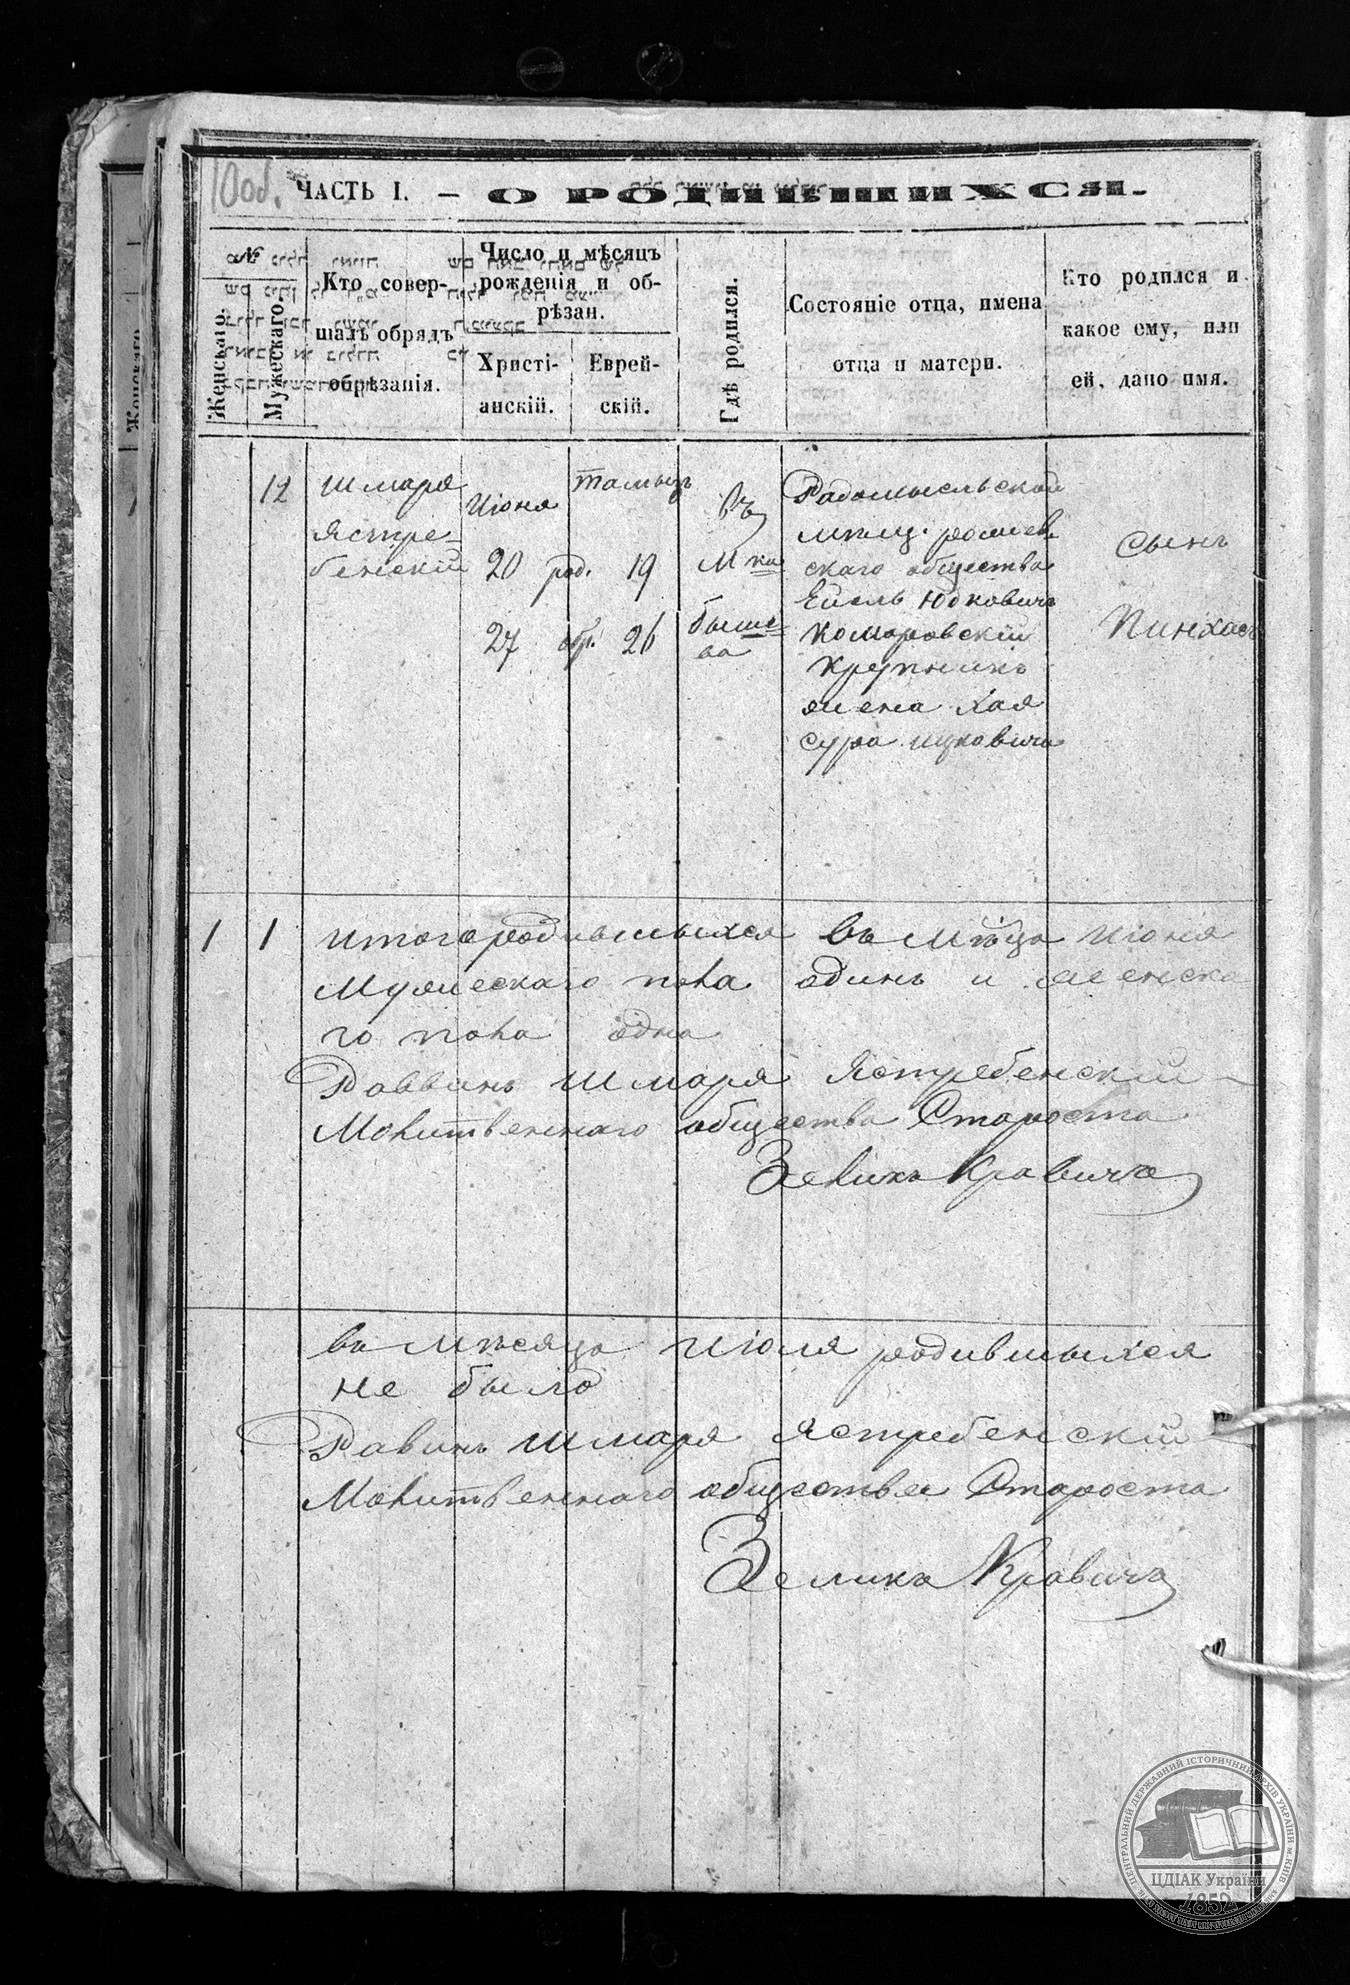 10 об.
ЧАСТЬ I. — О РОДИВШИХСЯ.
№
Женскаго.
Мужескаго.
Кто совер-
шалъ обрядъ
обрѣзанія.
Число и мѣсяцъ
рожденія и об-
рѣзан.
Христі-
анскій.
Еврей-
скій.
Гдѣ родился.
Состояніе отца, имена
отца и матери.
Кто родился и
какое ему, или
ей, дано имя.
12
Шмаря
Ястре-
бенскій
Июня
20 род.
27 обр.
тамызъ
19
26
Въ
М ка
Быше-
ва
Радомысльской
мѣщ.
скаго общества
Юдковичъ
Комаровскій
Крупникъ
жена Хая
Сура Ицковича
Сынъ
Пинхасъ
1 1 Итого родившыхся въ Мѣца Июня
Мужескаго пола одинъ и женска
го пола одна
Раввинъ Шмаря Ястребенскій
Молитвеннаго общества Староста
Зеликъ Кравича
въ мѣсяца Июля родившыхся
не было
Равинъ Шмаря Ястребенскій
Молитвеннаго общества Староста
Зелика Кравича
ЦЕНТРАЛЬНИЙ ДЕРЖАВНИЙ ІСТОРИЧНИЙ АРХІВ УКРАЇНИ М.КИЇВ
ЦДІАК України
1852